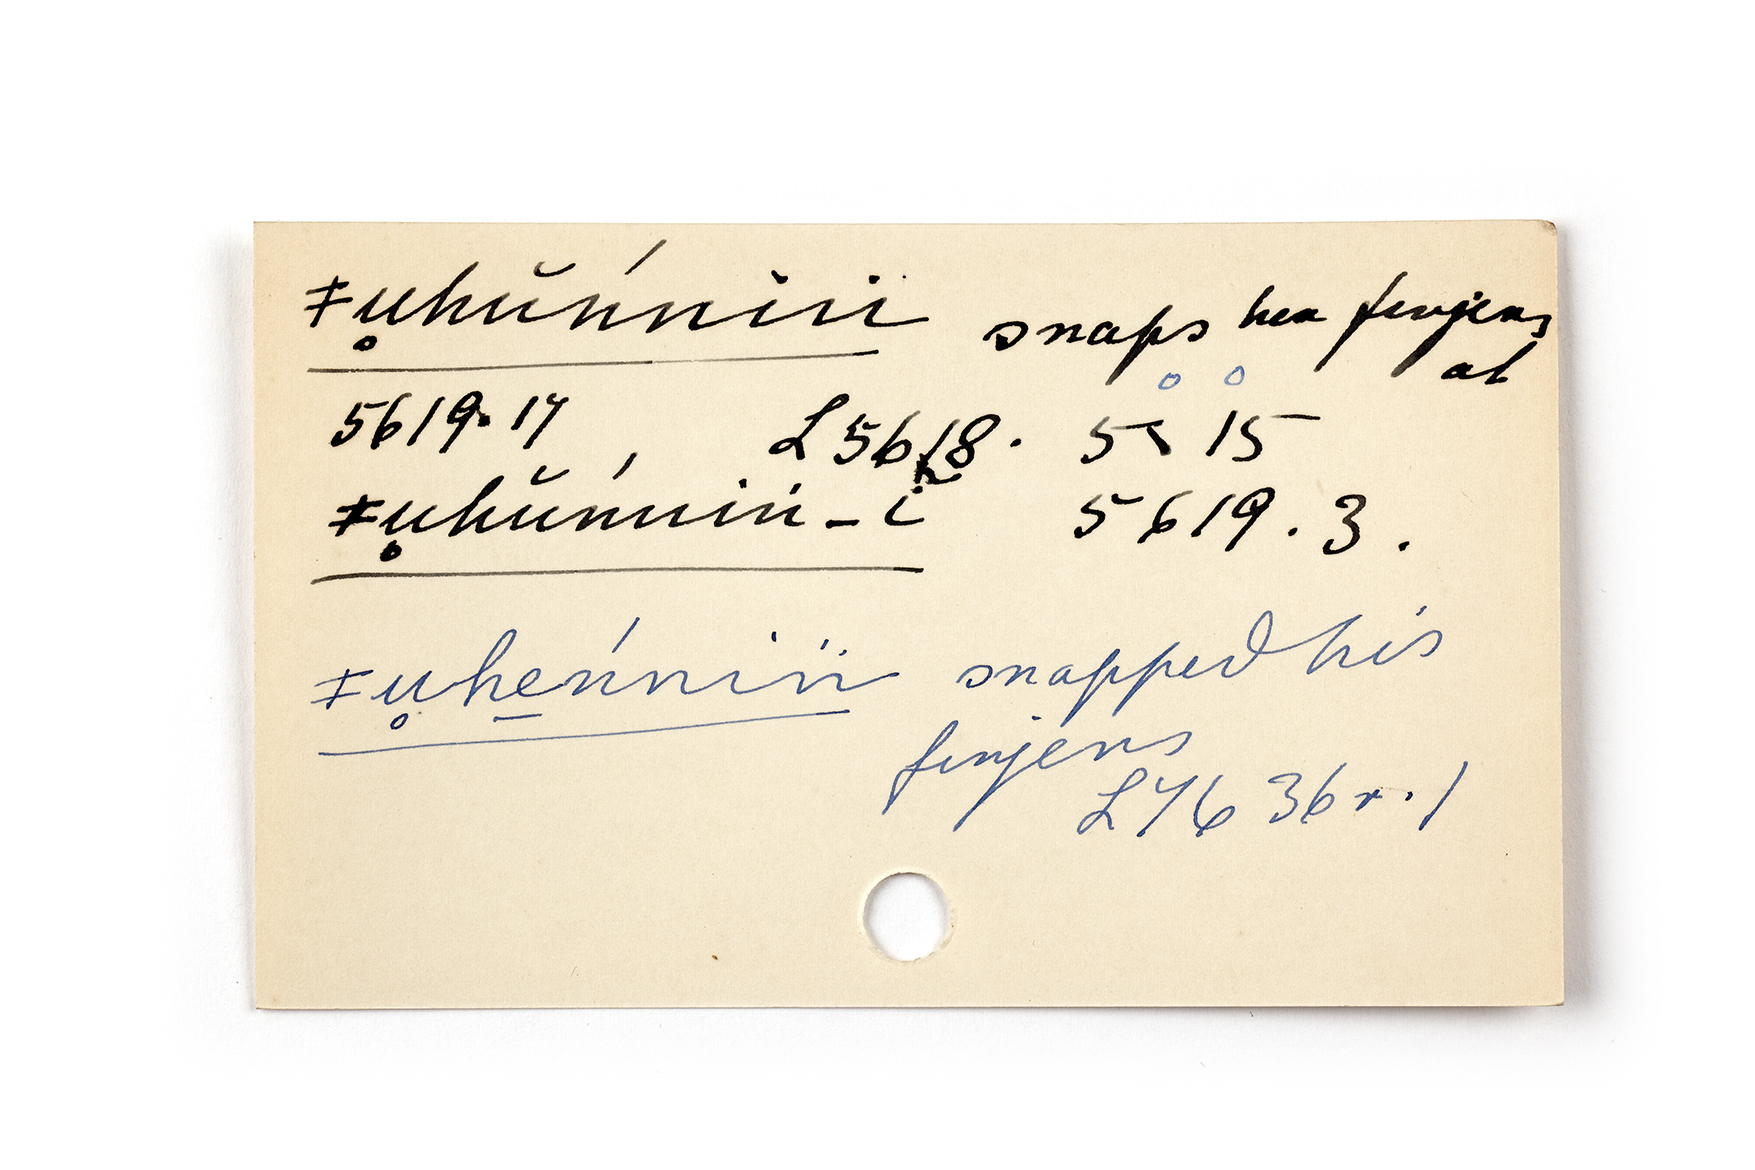 ǂu̥hŭńniń snaps her fingers
at
5619.17 L5618. 5, 15
ǂu̥hŭńniń-ĭ 5619.3.
ǂu̥he̱ńniṅ̈ snapped his
fingers
L V 6 36 r. 1